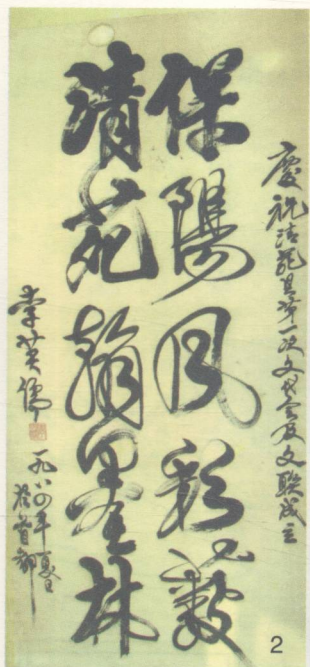 慶祝清苑县第一次文代会及文聯成立
保陽风彩藪
清苑翰墨林
李英儒
一九八四年夏日
於首都
2